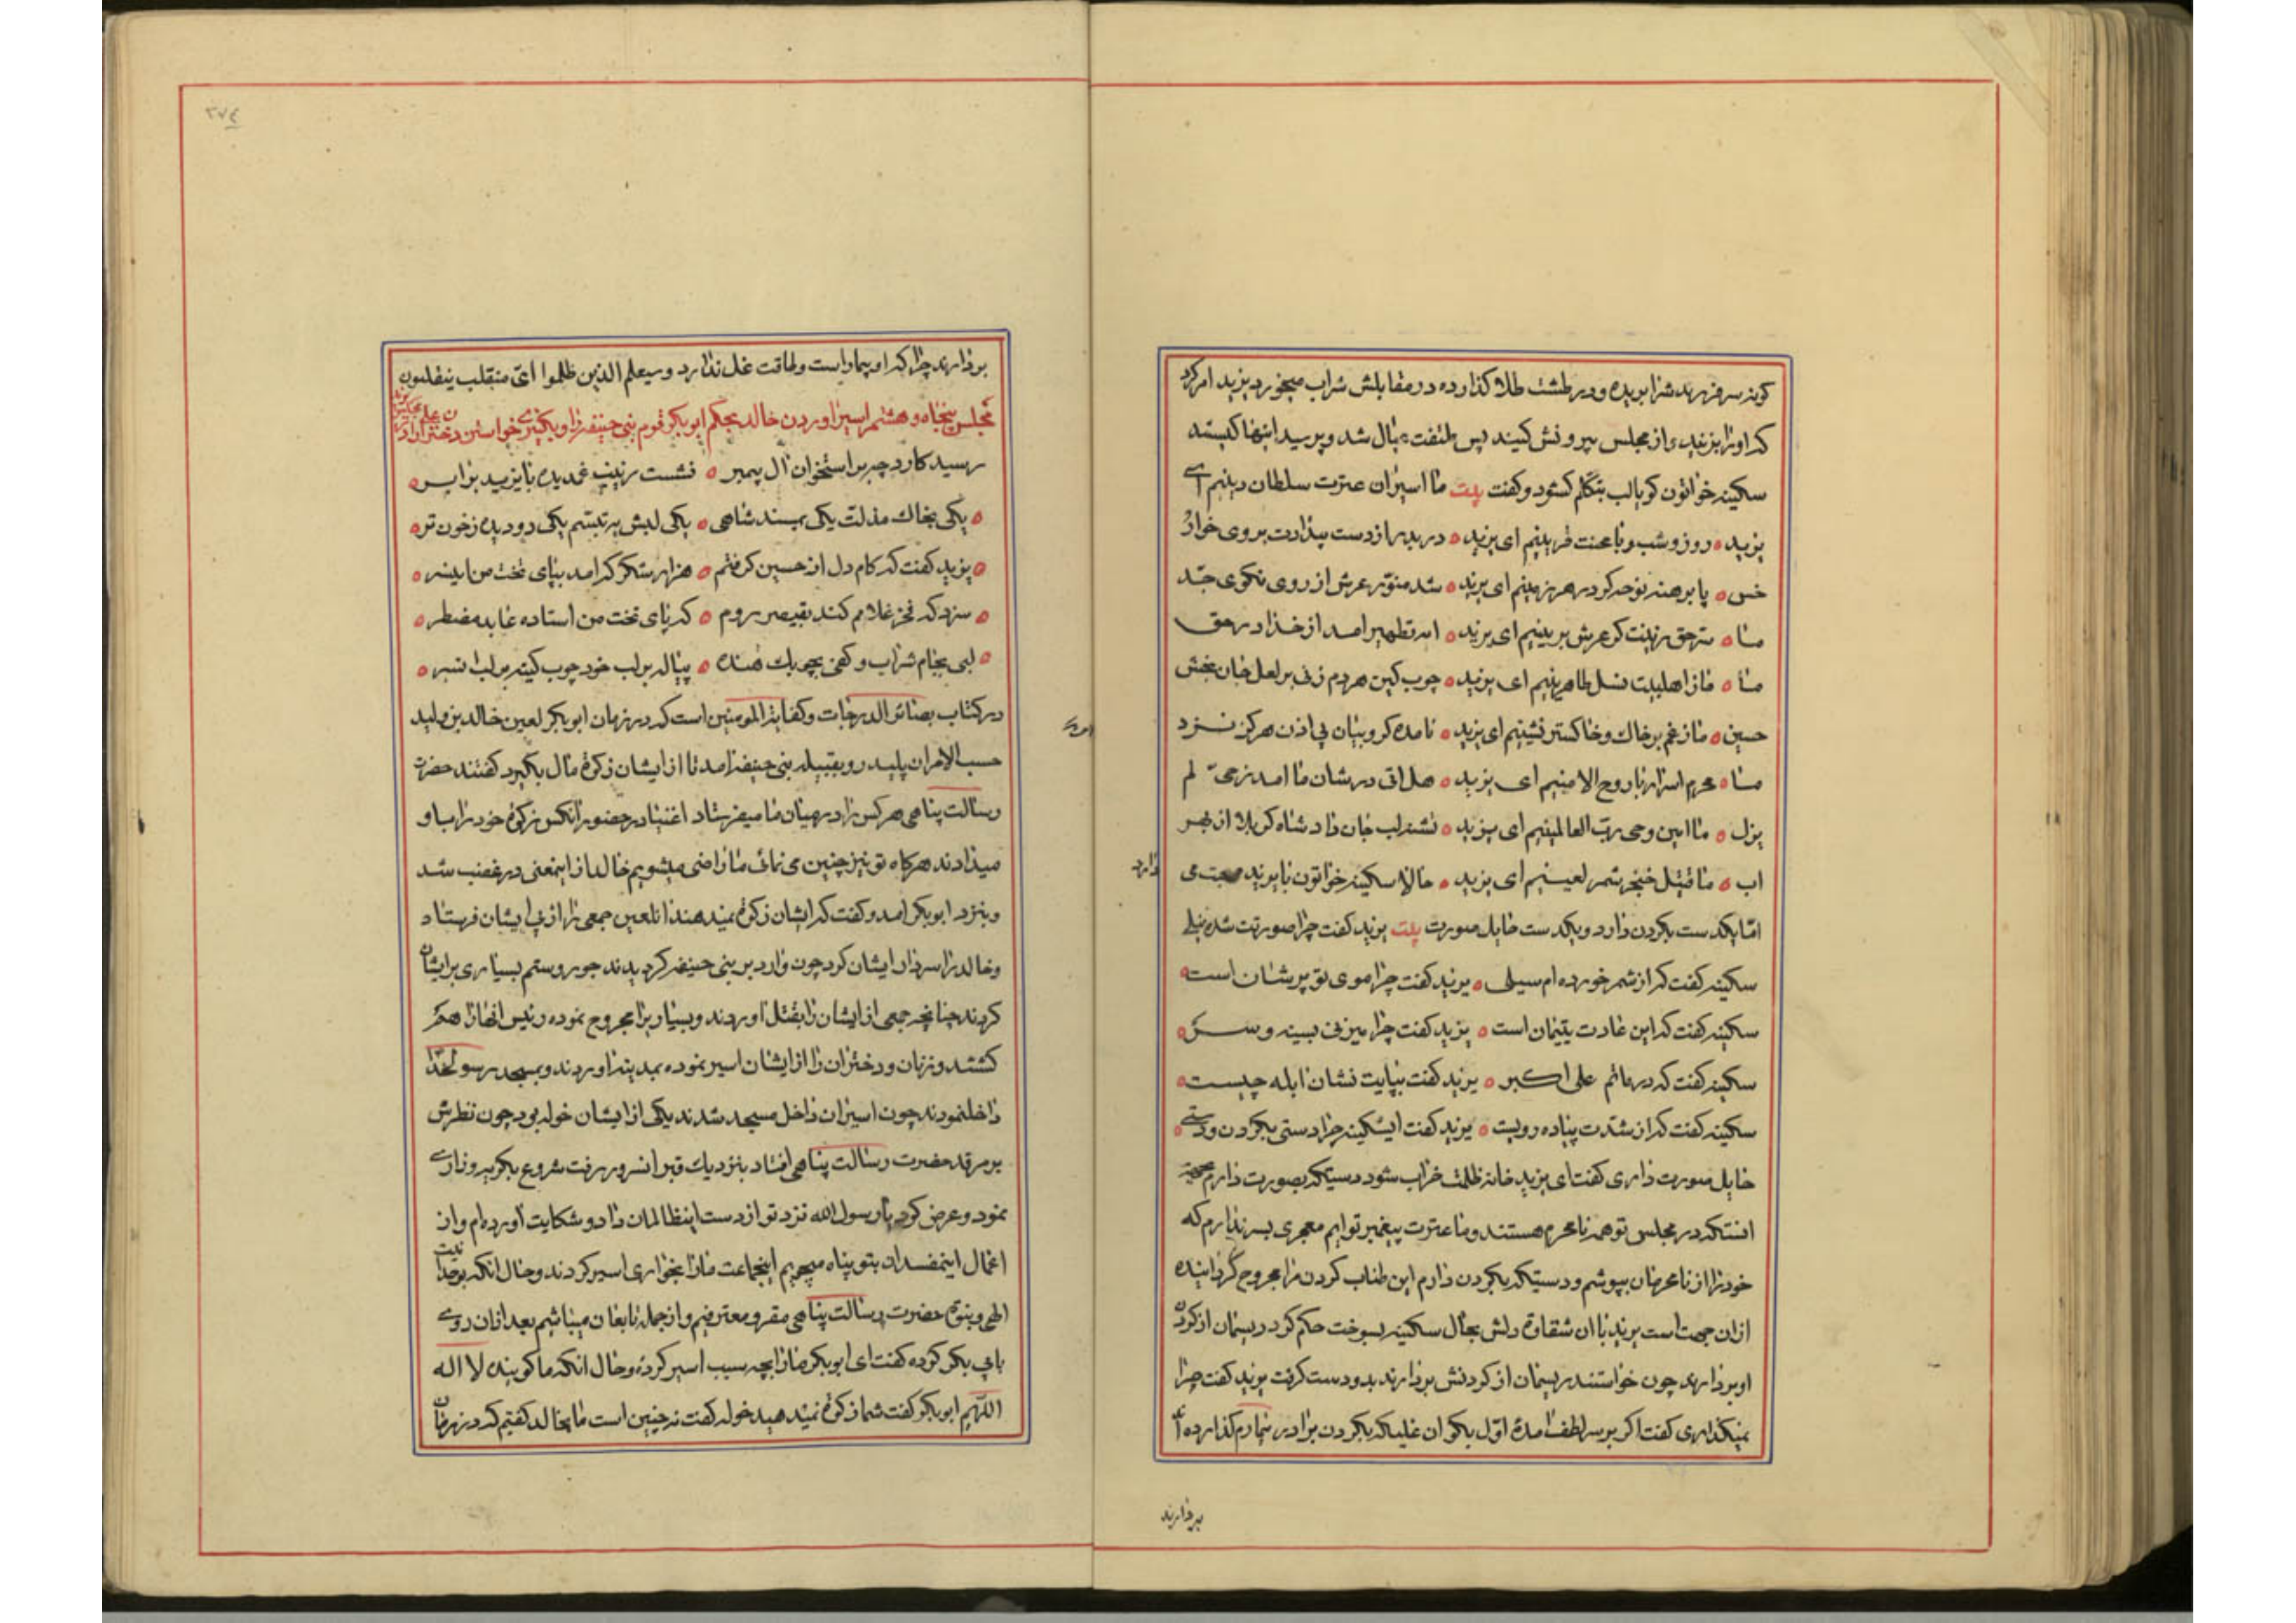 کونه سر فرزند شرا بریده و در طشت طلا کذارده در مقابلش شراب میخورد یزید امر کرد
که اورا بزنید و از مجلس بیرونش کنید پس ملتفت بمال شد و پرسید اینها کیستند
سکینه خواتون کو بالب بتکلم کشود و کفت بیت ما اسیران عترت سلطان دینیم ای
یزید ه روز و شب و با محنت قرینیم ای یزید ه در بدر از دست بیدادت بروی خوار
خس ه پا برهنه نوحه کر در هر زمینیم ای یزید ه شد منور عرش از روی نکوی جد
ما ه سر حق زینت کر عرش برینیم ای یزید ه ایه تطهیر امد از خدا در حق
ما ه ما ز اهلبیت نسل طاهرینیم ای یزید ه چوب کین هر دم زنی بر لعل جان بخش
حسین ه ما ز غم بر خاک و خاکستر نشینیم ای یزید ه نامده کروبیان بی اذن هرکز نزد
ما ه محرم اسرار با روح الامینیم ای یزید ه هل اتی در شان ما امد زحی لم
یزل ه ما امین وحی رب العالمینیم ای یزید ه تشنه لب جان داد شاه کربلا از بهر
اب ه ما قتیل خنجر شمر لعینیم ای یزید ه حالا سکینه خواتون با یزید صحبت می
دارد
اما یکدست بکردن دارد و یکدست حایل صورت بیت یزید کفت چرا صورتت شده نیلی
سکینه کفت که از شمر خورده ام سیلی ه یزید کفت چرا موی تو پریشان است ه
سکینه کفت که این عادت یتیمان است ه یزید کفت چرا میزنی بسینه و سر ه
سکینه کفت که در ماتم علی اکبر ه یزید کفت بپایت نشان ابله چیست ه
سکینه کفت که از شدت پیاده رویست ه یزید کفت ایسکینه چرا دستی بکردن و دستی ه
حایل صورت داری کفت ای یزید خانه ظلمت خراب شود دستیکه بصورت دارم بجهة
انستکه در مجلس تو همه نامحرم هستند و ما عترت پیغمبر توایم معجری بسر ندارم که
خود را از نامحرمان بپوشم و دستیکه بکردن دارم این طناب کردن مرا مجروح کردانیده
از ان جهت است یزید با ان شقاوة دلش بحال سکینه بسوخت حکم کرد ریسمان از کردن
او بردارند چون خواستند ریسمان از کردنش بردارند بدو دست کرفت یزید کفت چرا
نمیکذاری کفت اکر بر سر لطف امدۀ اول بکو ان غلیکه بکردن برادر بیمارم کذارده اند
بردارند
۲۷٤
بردارند چرا که او بیمار است و طاقت غل ندارد و سیعلم الذین ظلموا ای منقلب ینقلبون
مجلس پنجاه و هشتم اسیر اوردن خالد بحکم ابوبکر قوم بنی حنیفه را و بکنیزی خواستن دختران را
رسید کارد چه بر استخوان ال پیمبر ه نشست زینب غمدیده با یزید برابر ه
ه یکی بخاک مذلت یکی بمسند شاهی ه یکی لبش به تبسم یکی دو دیده زخون تر ه
ه یزید کفت که کام دل از حسین کرفتم ه هزار شکر که امد بپای تخت من این سر ه
ه سزد که فخر غلامم کند بقیصر روم ه که پای تخت من استاده عابد مضطر ه
ه لبی بجام شراب و کفی بچوبک خنده ه پیاله بر لب خود چوب کینه بر لب سر ه
در کتاب بصائر الدرجات و کفایة المومنین است که در زمان ابوبکر لعین خالد بن ولید
حسب الامر ان پلید رو بقبیله بنی حنیفه امد تا از ایشان زکوة مال بکیرد کفتند حضرت
رسالت پناهی هر کس را در میان ما میفرستاد اغنیا در حضور انکس زکوة خود را باو
میدادند هر کاه تو نیز چنین می نمائی ما راضی میشویم خالد از اینمعنی در غضب شد
و بنزد ابوبکر امد و کفت که ایشان زکوة نمیدهند انلعین جمعی را از پی ایشان فرستاد
و خالد را سردار ایشان کرد چون وارد بر بنی حنیفه کردیدند جور و ستم بسیاری بر ایشان
کردند چنانچه جمعی از ایشان را بقتل اوردند و بسیاریرا مجروح نموده رئیس انها را هم
کشتند و زنان و دختران را از ایشان اسیر نموده بمدینه اوردند و بمسجد رسولخدا
داخلنمودند چون اسیران داخل مسجد شدند یکی از ایشان خوله بود چون نظرش
بر مرقد حضرت رسالت پناهی افتاد بنزدیک قبر انسرور رفت شروع بکریه و زاری
نمود و عرض کرد یا رسول الله نزد تو از دست اینظالمان داد و شکایت اورده ام و از
اعمال اینمفسدان بتو پناه میجویم اینجماعت ما را بخواری اسیر کردند و حال انکه بوحدانیت
الهی و بنبوة حضرت رسالت پناهی مقر و معترفیم و از جمله تابعان میباشیم بعد از ان روی
بابی بکر کرده کفت ای ابوبکر ما را بچه سبب اسیر کردۀ و حال انکه ما کوینده لا اله
اللهیم ابوبکر کفت شما زکوة نمیدهید خوله کفت نه چنین است ما بخالد کفتیم که در زمان